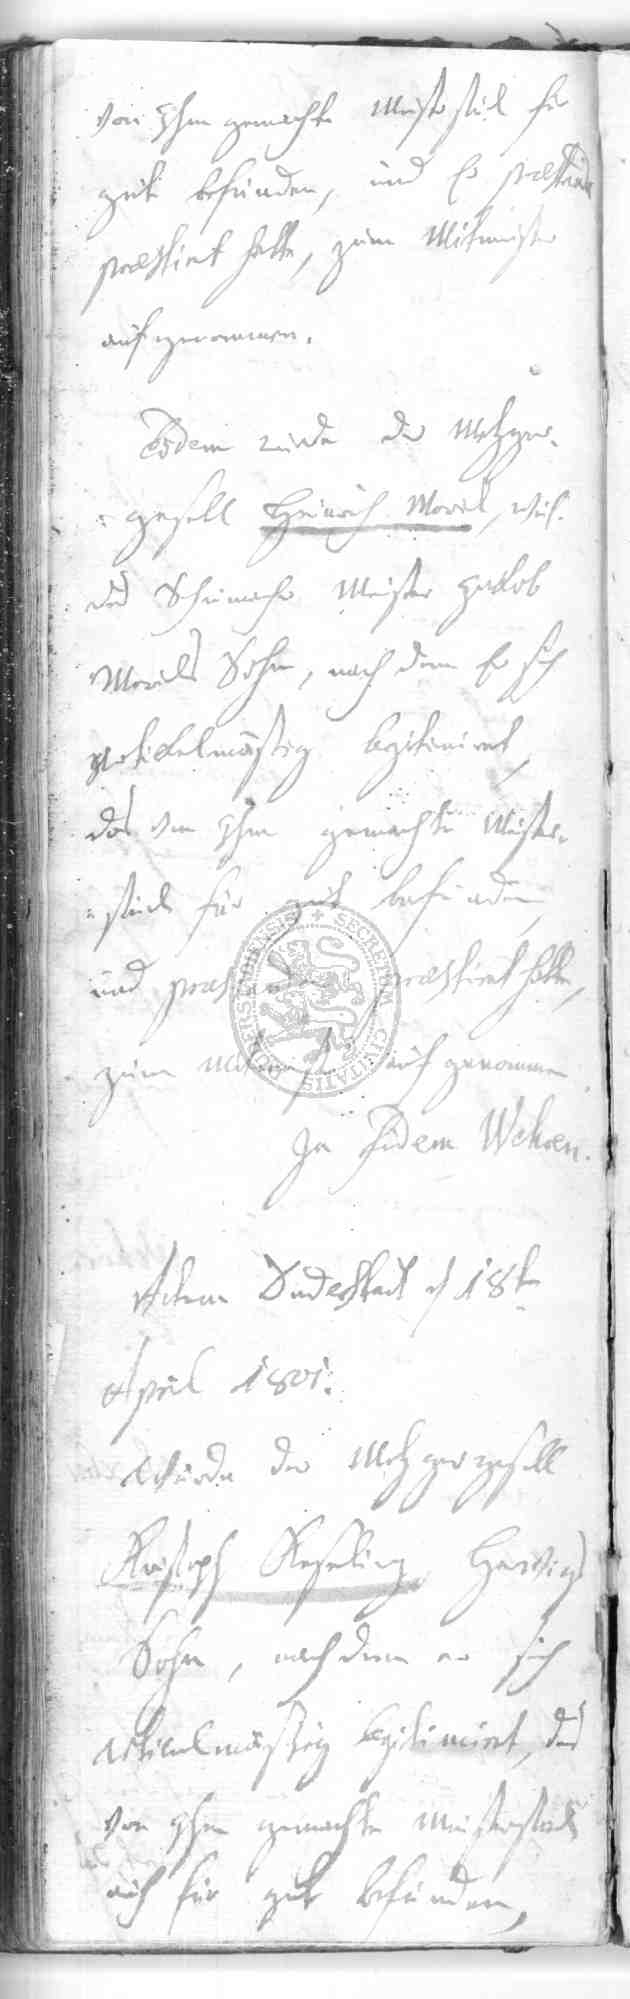 von Ihm gemachte Meisterstük für
gute befunden, und Er praestanda
praestirt hatte, zum Mitmeister
aufgenommen.
Eodem wurde der Metzger-
gesell Heinrich Morick, weil.
des Schumacher Meister Jacob
Moricks Sohn, nach dem Er sich
artickelmässig legitimiret,
das von Ihm gemachte Meister-
stük für gut befunden,
und praestanda praestiret hatte,
zum Mitmeister auf genommen.
In Fidem Wehren.
Actum Duderstadt d 18t
April 1801.
Wurde der Metzgergesell
Kristoph Keseling
Sohn, nach dem er sich
artickelmässig legitimirt, das
von Ihm gemachte Meisterstück
auch für gute befunden,
SECRETUM CIVITATIS DUDERSTADENSIS